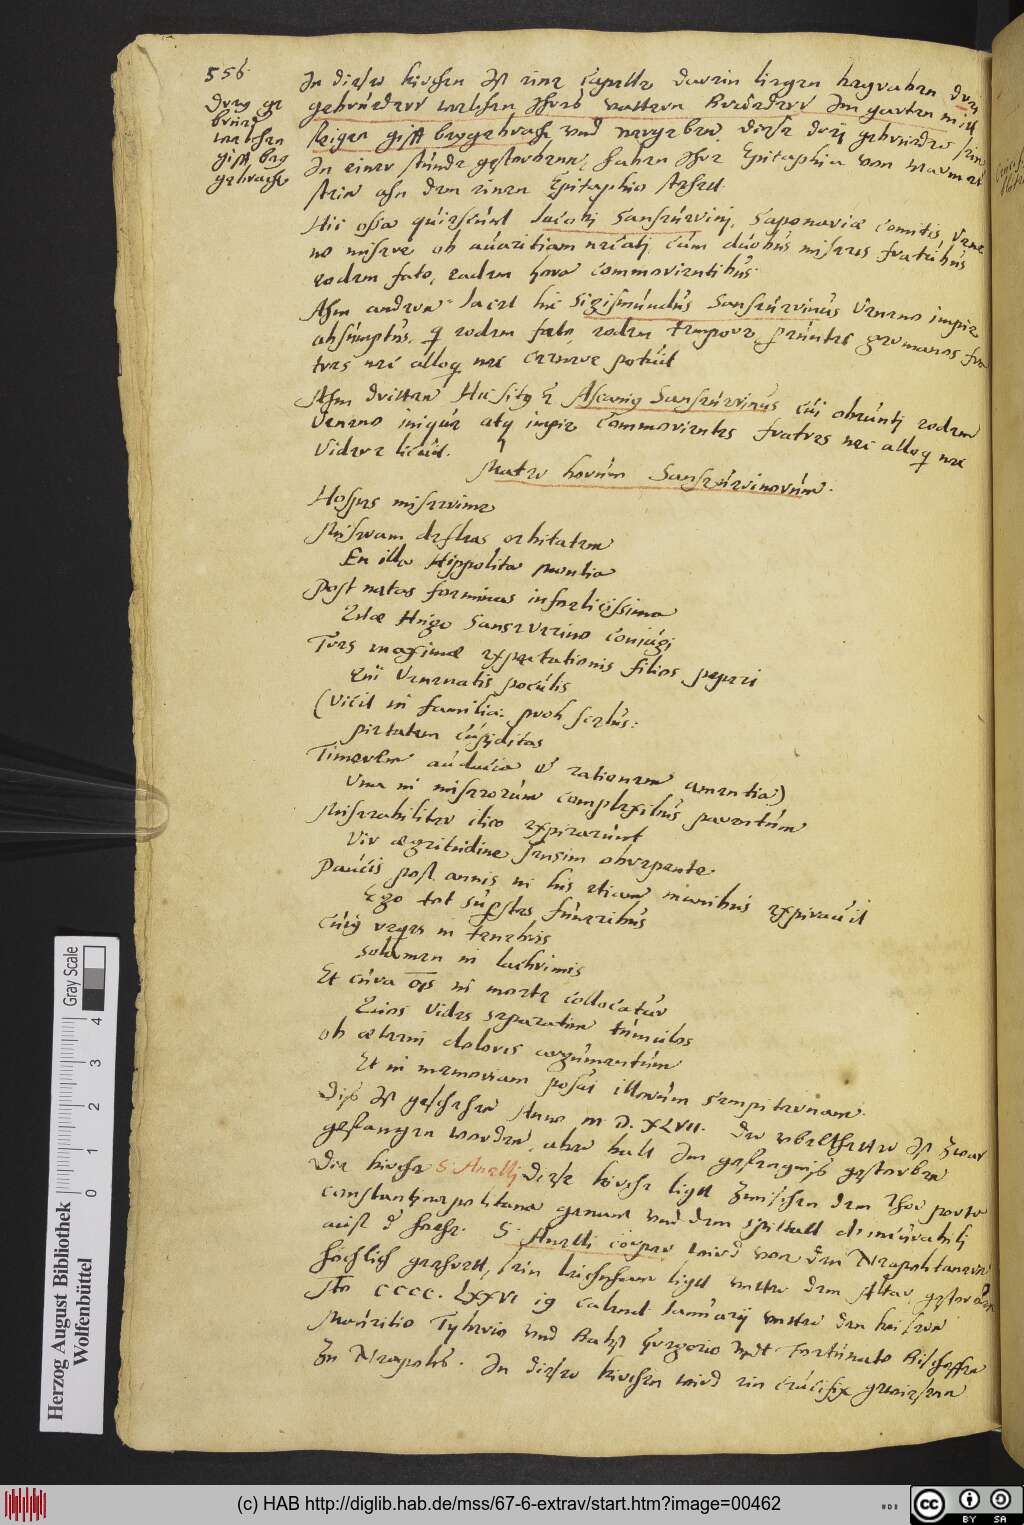 556
Dreÿ ge
brüed
welchen
gifft beÿ
gebracht
In dieser kirchen Ist eine Capella darin liegen begraben dreÿ
gebrüeder welchen Ihres vattern Brüeder Im garten mitt
feigen gifft beygebracht und vergeben. diese dreÿ gebrüeder sein
In einer stunde gestorbenn, haben Ihre Epitaphia von marmer
stein ahn dem einen Epitaphio stehet.
Hic ossa quiescunt Jacobj Sanseuerinj, Saponariæ comitis, vene
no misere ob auaritiam necatj cum duobus miseris fratribus
eodem fato, eadem hora commorientibus
Ahm andern Jacet hic Sigismundus Sanseuerinus veneno impie
absumptus, q eodem fato, eodem tempore pereuntes germanos fra
tres nec alloq nec cernere potuit
Ahm dritten Hic sitq E Ascaniq Sanseuerinus cui obeuntj eodem
Veneno iniquè atq impie commorientes fratres nec alloq nec
Videre licuit.
Mater horum Sanseuerinorum.
Hospes miserime
Miseram defleas orbitatem
En illa Hippolita montia
Post natas foeminas infoelicissima
Quæ Hugo Sanseverino conjugj
Tres maximæ expectationis filios peperi
Qui Venenatis poculis
(Vicit in familia: proh scelus:
pietatem cupiditas
Timorem audacia et rationem amentia)
Una in miserorum complexibus parentum
Miserabiliter ilico expirarunt
Vir ægritudine sensim obrepente
Paucis post annis in his etiam manibus expirauit
Ego tot supstes funeribus
Cuiq reqes in tenebris
Solamen in lachrimis
Et cura ois in morte collocatur
Quos vides separatim tumulos
ob æterni doloris argumentum
Et in memoriam posui illorum sempiternam.
Diß Ist geschehen Anno M. D. XLVII. der ubelthetter Ist zwar
gefangen worden, aber balt Im gefengniß gestorben
Die kirche S. Anellj Diese kirche ligtt zwischen dem Thor porta
Constantinopolitana genant und dem Spittall
S. Anelli corper wird von den Neapolitanern
höchlich geehrett, sein leichnam ligtt unter dem Altar, gestorben
Ao CCCC. LXXVI 19 Calend. Januarij unter den keisern
Mauritio Tyberio und Babst Gregorio undt Fortunato Bischoffen
Zu Neapolis. In dieser kirchen wird ein Crucifix gewiesenn
Gray Scale
0 1 2 3 4
Herzog August Bibliothek
Wolfenbüttel
(c) HAB http://diglib.hab.de/mss/67-6-extrav/start.htm?image=00462
cc BY SA